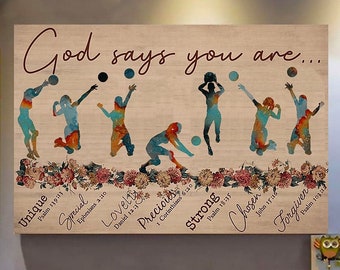 God says you are...
Unique
Psalm
Special
Ephesians 2:10
Lovely
Daniel 12:3
Precious
1 Corinthians 6:20
Strong
Psalm
Chosen
John
Forgiven
Psalm